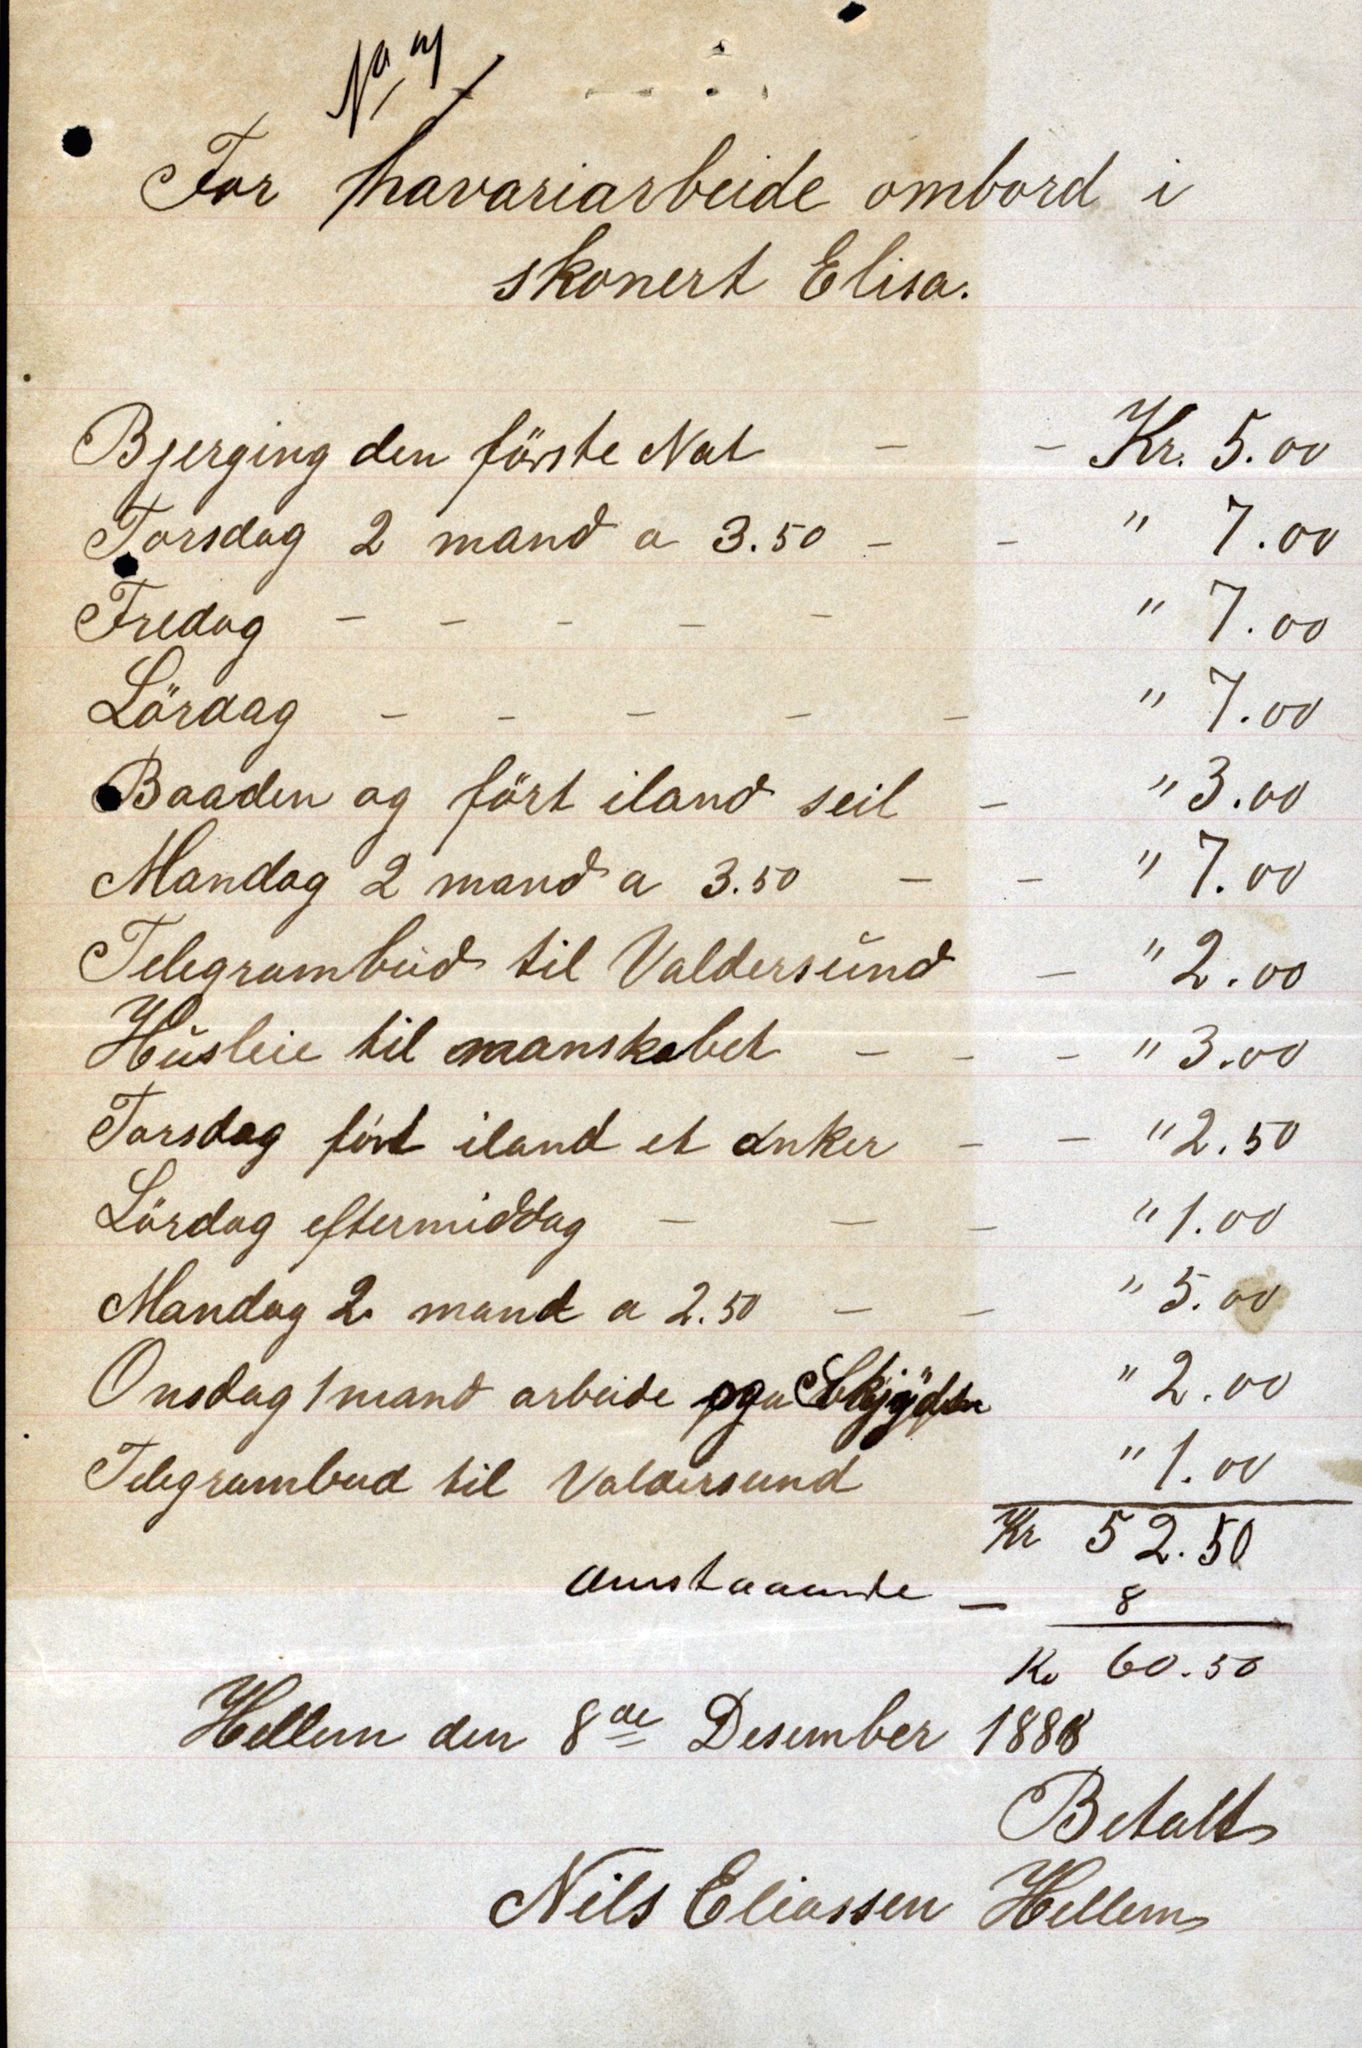 No
For havariarbeide ombord i
skonert Elisa.
Bjerging den förste Nat - - Kr. 5.00
Torsdag 2 mand a 3.50 - - " 7.00
Fredag - - - - - " 7.00
Lördag - - - - - " 7.00
Baaden og fört iland seil - " 3.00
Mandag 2 mand a 3.50 - - " 7.00
Telegrambud til Valdersund - " 2.00
Husleie til manskabet - - - " 3.00
Torsdag fört iland et anker - - " 2.50
Lördag eftermiddag - - - " 1.00
Mandag 2 mand a 2.50 - - " 5.00
Onsdag 1 mand arbeide " 2.00
Telegrambud til Valdersund " 1.00
Kr 52.50
- 8
Kr 60.50
Hellem den 8de Desember 1888
Betalt
Nils Eliassen Hellem